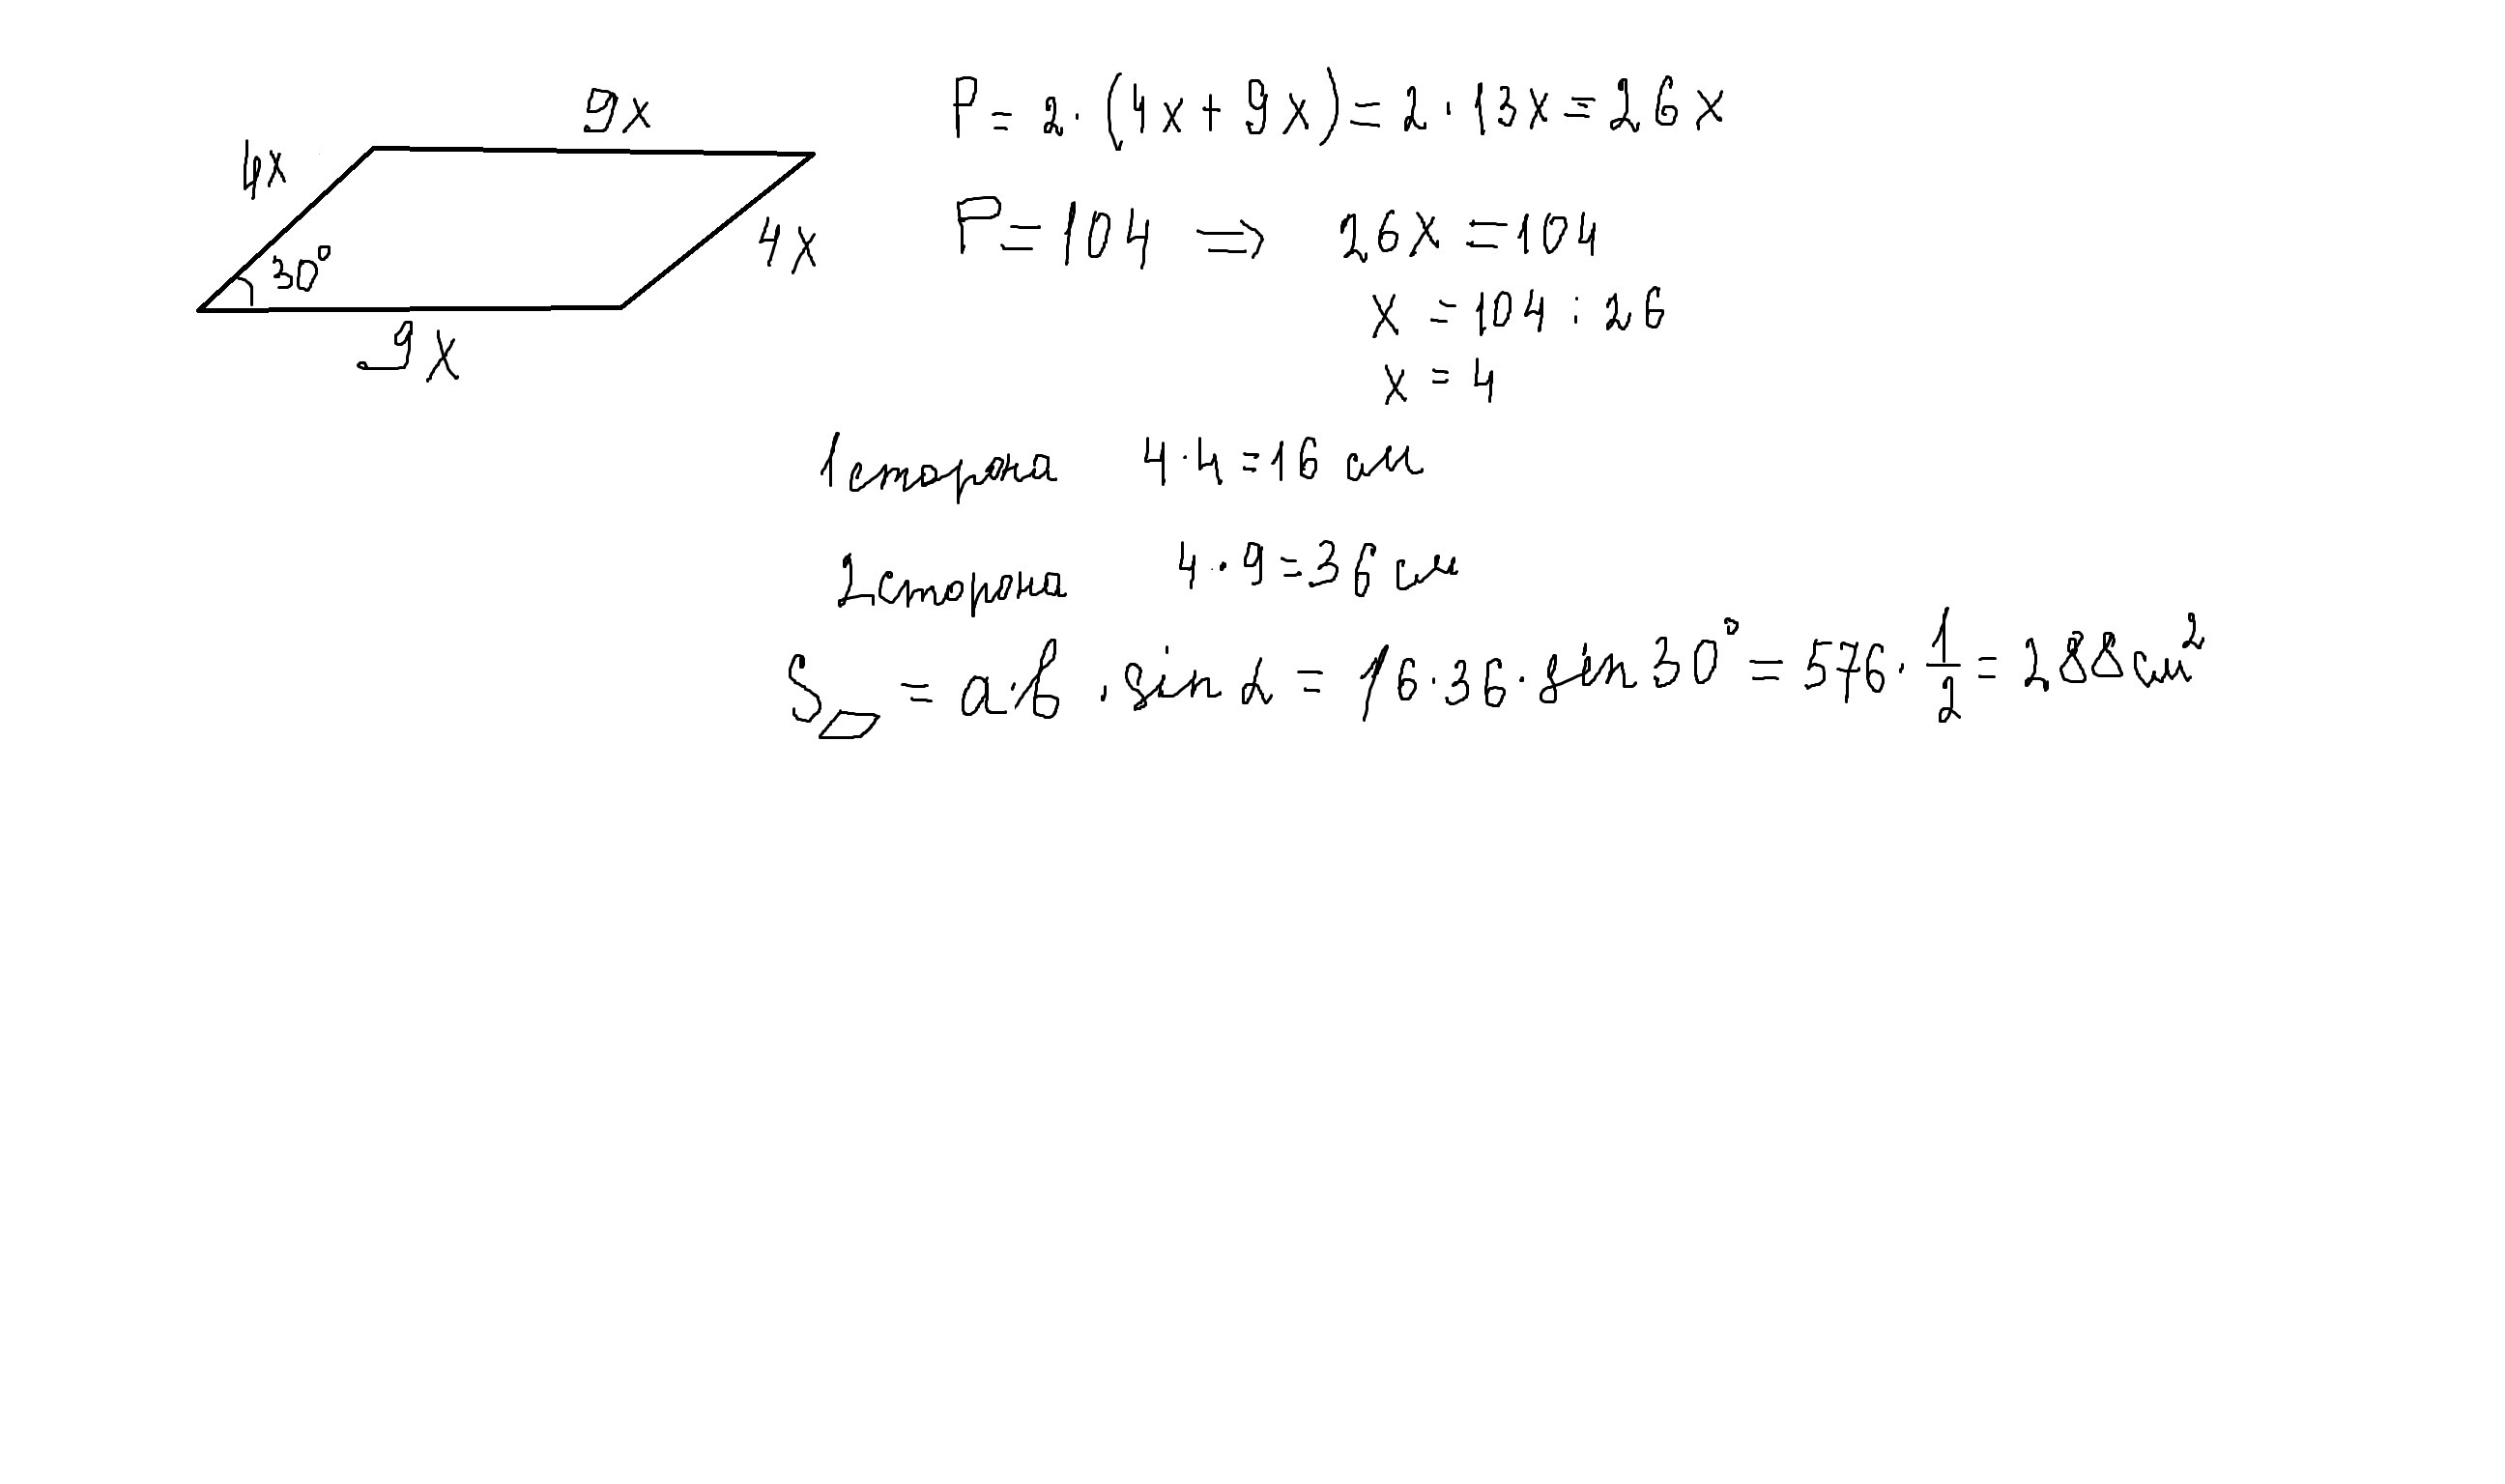 9x
4x
30°
4x
9x
P = 2 · (4x + 9x) = 2 · 13x = 26x
P = 104 ⇒ 26x = 104
x = 104 : 26
x = 4
1 сторона 4 · 4 = 16 см
2 сторона 4 · 9 = 36 см
S▱ = a · b · sin α = 16 · 36 · sin 30° = 576 · 1/2 = 288 см²